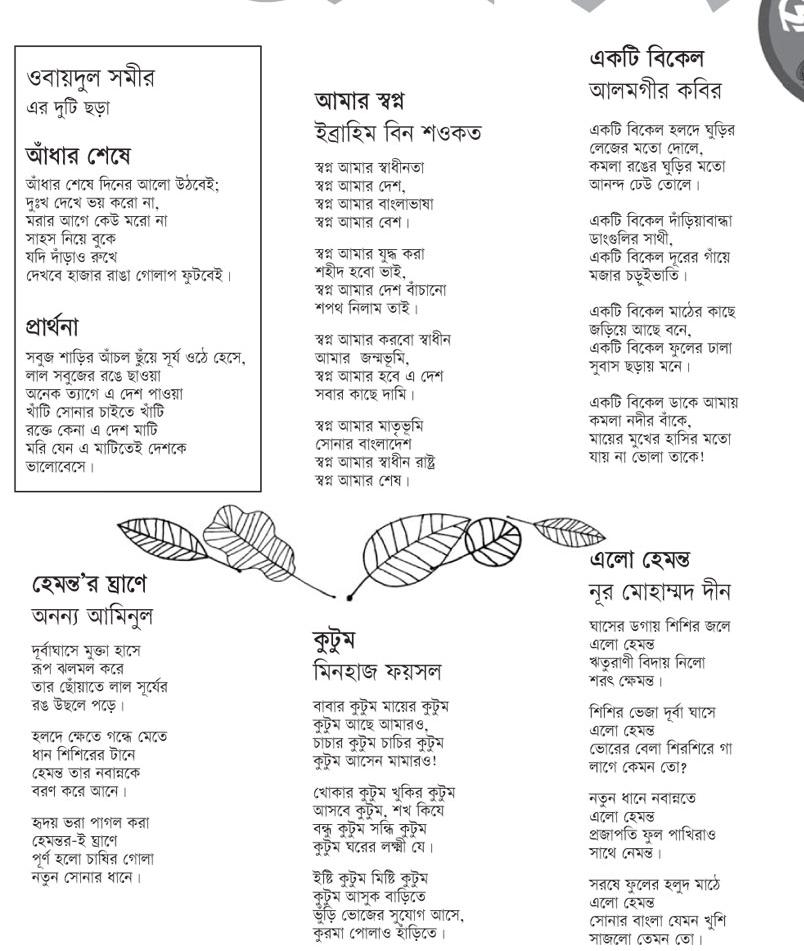 ওবায়দুল সমীর
এর দুটি ছড়া
আঁধার শেষে
আঁধার শেষে দিনের আলো উঠবেই;
দুঃখ দেখে ভয় করো না,
মরার আগে কেউ মরো না
সাহস নিয়ে বুকে
যদি দাঁড়াও রুখে
দেখবে হাজার রাঙা গোলাপ ফুটবেই।
প্রার্থনা
সবুজ শাড়ির আঁচল ছুঁয়ে সূর্য ওঠে হেসে,
লাল সবুজের রঙে ছাওয়া
অনেক ত্যাগে এ দেশ পাওয়া
খাঁটি সোনার চাইতে খাঁটি
রক্তে কেনা এ দেশ মাটি
মরি যেন এ মাটিতেই দেশকে
ভালোবেসে।
আমার স্বপ্ন
ইব্রাহিম বিন শওকত
স্বপ্ন আমার স্বাধীনতা
স্বপ্ন আমার দেশ,
স্বপ্ন আমার বাংলাভাষা
স্বপ্ন আমার বেশ।
স্বপ্ন আমার যুদ্ধ করা
শহীদ হবো ভাই,
স্বপ্ন আমার দেশ বাঁচানো
শপথ নিলাম তাই।
স্বপ্ন আমার করবো স্বাধীন
আমার জন্মভূমি,
স্বপ্ন আমার হবে এ দেশ
সবার কাছে দামি।
স্বপ্ন আমার মাতৃভূমি
সোনার বাংলাদেশ
স্বপ্ন আমার স্বাধীন রাষ্ট্র
স্বপ্ন আমার শেষ।
একটি বিকেল
আলমগীর কবির
একটি বিকেল হলদে ঘুড়ির
লেজের মতো দোলে,
কমলা রঙের ঘুড়ির মতো
আনন্দ ঢেউ তোলে।
একটি বিকেল দাঁড়িয়াবান্ধা
ডাংগুলির সাথী,
একটি বিকেল দূরের গাঁয়ে
মজার চড়ূইভাতি।
একটি বিকেল মাঠের কাছে
জড়িয়ে আছে বনে,
একটি বিকেল ফুলের ঢালা
সুবাস ছড়ায় মনে।
একটি বিকেল ডাকে আমায়
কমলা নদীর বাঁকে,
মায়ের মুখের হাসির মতো
যায় না ভোলা তাকে!
হেমন্ত'র ঘ্রাণে
অনন্য আমিনুল
দূর্বাঘাসে মুক্তা হাসে
রূপ ঝলমল করে
তার ছোঁয়াতে লাল সূর্যের
রঙ উছলে পড়ে।
হলদে ক্ষেতে গন্ধে মেতে
ধান শিশিরের টানে
হেমন্ত তার নবান্নকে
বরণ করে আনে।
হৃদয় ভরা পাগল করা
হেমন্তর-ই ঘ্রাণে
পূর্ণ হলো চাষির গোলা
নতুন সোনার ধানে।
কুটুম
মিনহাজ ফয়সল
বাবার কুটুম মায়ের কুটুম
কুটুম আছে আমারও,
চাচার কুটুম চাচির কুটুম
কুটুম আসেন মামারও!
খোকার কুটুম খুকির কুটুম
আসবে কুটুম, শখ কিযে
বন্ধু কুটুম সন্ধি কুটুম
কুটুম ঘরের লক্ষ্মী যে।
ইষ্টি কুটুম মিষ্টি কুটুম
কুটুম আসুক বাড়িতে
ভুঁড়ি ভোজের সুযোগ আসে,
কুরমা পোলাও হাঁড়িতে।
এলো হেমন্ত
নূর মোহাম্মদ দীন
ঘাসের ডগায় শিশির জলে
এলো হেমন্ত
ঋতুরাণী বিদায় নিলো
শরৎ ক্ষেমন্ত।
শিশির ভেজা দূর্বা ঘাসে
এলো হেমন্ত
ভোরের বেলা শিরশিরে গা
লাগে কেমন তো?
নতুন ধানে নবান্নতে
এলো হেমন্ত
প্রজাপতি ফুল পাখিরাও
সাথে নেমন্ত।
সরষে ফুলের হলুদ মাঠে
এলো হেমন্ত
সোনার বাংলা যেমন খুশি
সাজলো তেমন তো।